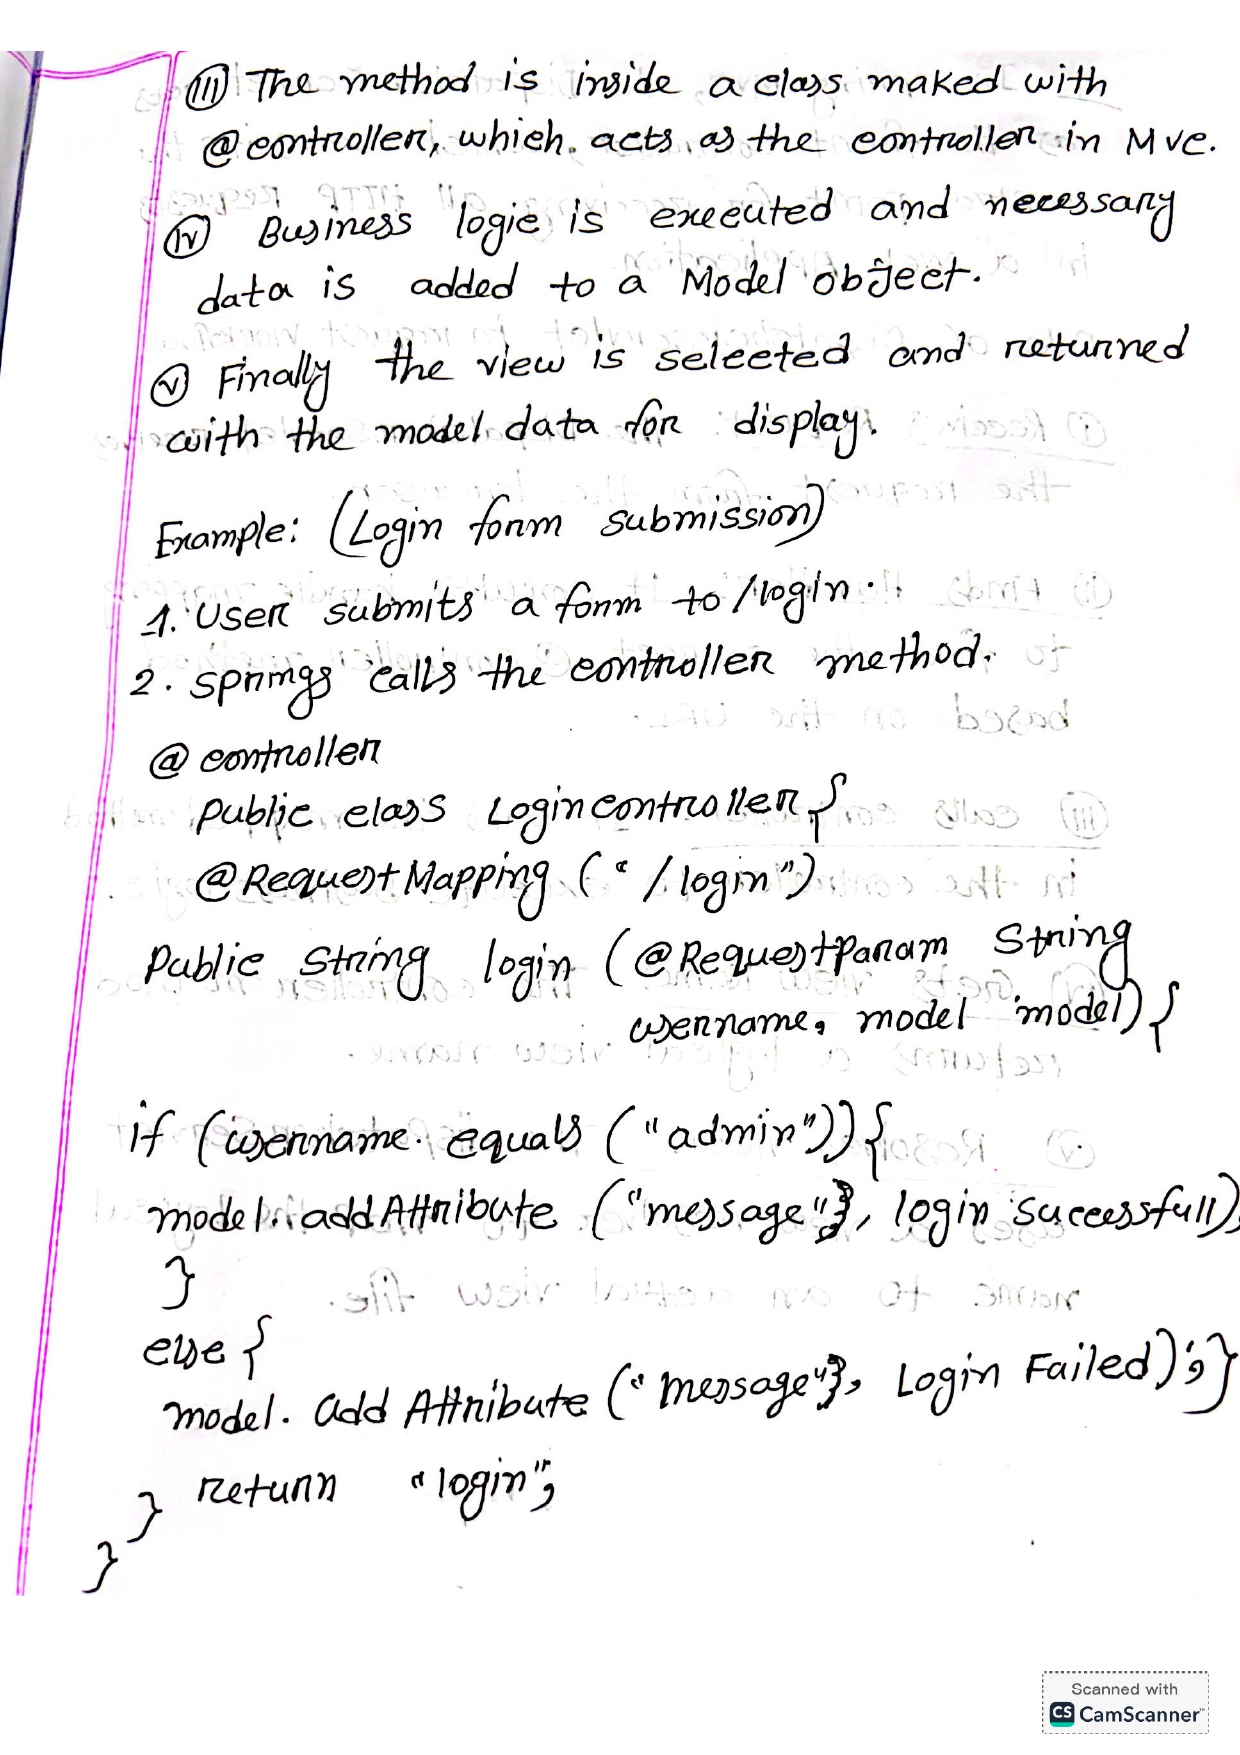 (iii) The method is inside a class maked with
@controller, which acts as the controller in Mvc.
(iv) Business logic is executed and necessary
data is added to a Model object.
(v) Finally the view is selected and returned
with the model data for display.
Example: (Login form submission)
1. User submits a form to /login.
2. springs calls the controller method.
@controller
Public class Logincontroller {
@RequestMapping ("/login")
Public String login (@RequestParam String
username, model model) {
if (username. equals ("admin")) {
model. addAttribute ("message", login successfull),
}
else {
model. add Attribute ("message", Login Failed); }
return "login";
}
}
Scanned with
CS CamScanner